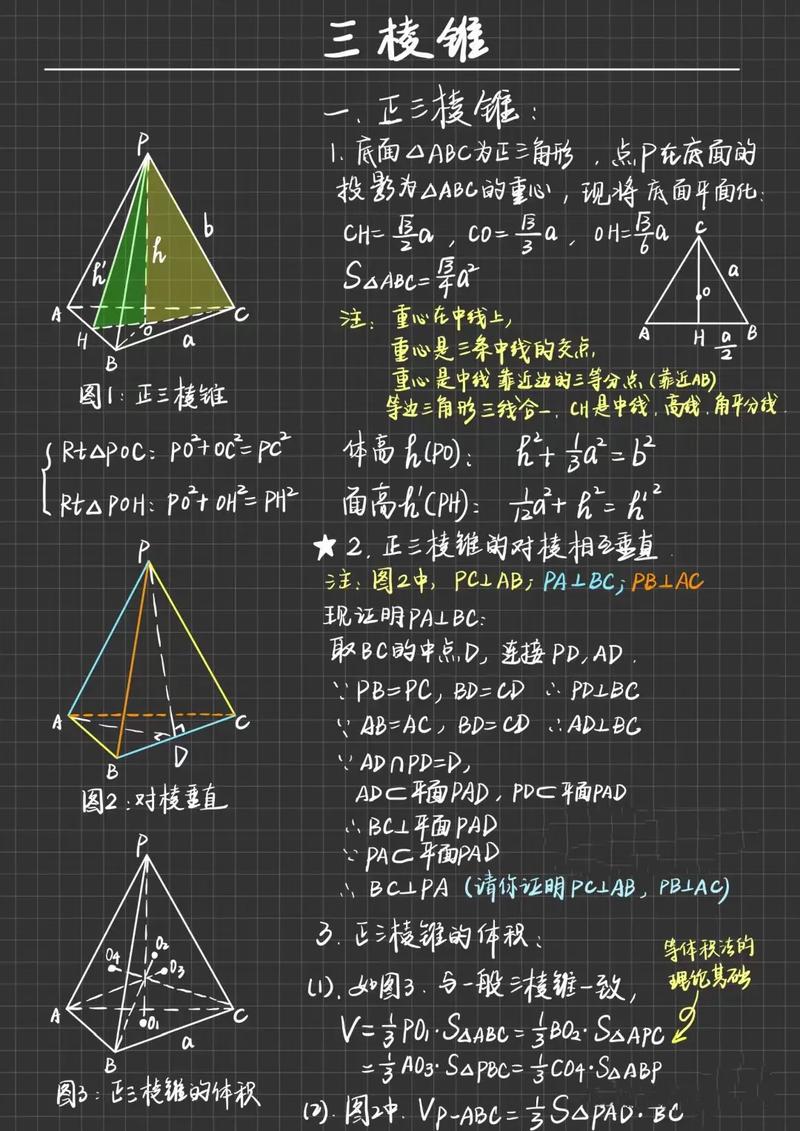 三棱锥
一、正三棱锥：
1. 底面△ABC为正三角形，点P在底面的
投影为△ABC的重心，现将底面平面化：
CH=√3/2a，CO=√3/3a，OH=√3/6a
S△ABC=√3/4a²
注：重心在中线上，
重心是三条中线的交点，
重心是中线靠近边的三等分点（靠近AB）
等边三角形三线合一，CH是中线、高线、角平分线．
C
a
O
A H B
a/2
P
b
h
h'
A
H
B
O
C
a
图1：正三棱锥
Rt△POC：PO²+OC²=PC²
Rt△POH：PO²+OH²=PH²
体高h(PO)：h²+1/3a²=b²
面高h'(PH)：1/12a²+h²=h'²
★2．正三棱锥的对棱相互垂直．
注：图2中，PC⊥AB；PA⊥BC；PB⊥AC
现证明PA⊥BC：
取BC的中点D，连接PD，AD．
∵PB=PC，BD=CD ∴PD⊥BC
∵AB=AC，BD=CD ∴AD⊥BC
∵AD∩PD=D，
AD⊂平面PAD，PD⊂平面PAD
∴BC⊥平面PAD
∵PA⊂平面PAD
∴BC⊥PA（请你证明PC⊥AB，PB⊥AC）
P
A
B
D
C
图2：对棱垂直
3．正三棱锥的体积：
(1)．如图3．与一般三棱锥一致，
V=1/3PO₁·S△ABC=1/3BO₂·S△APC
=1/3AO₃·S△PBC=1/3CO₄·S△ABP
等体积法的
理论基础
(2)．图2中．V_P-ABC=1/3S△PAD·BC
P
O₄
O₂
O₃
A
O₁
B
a
C
图3：正三棱锥的体积